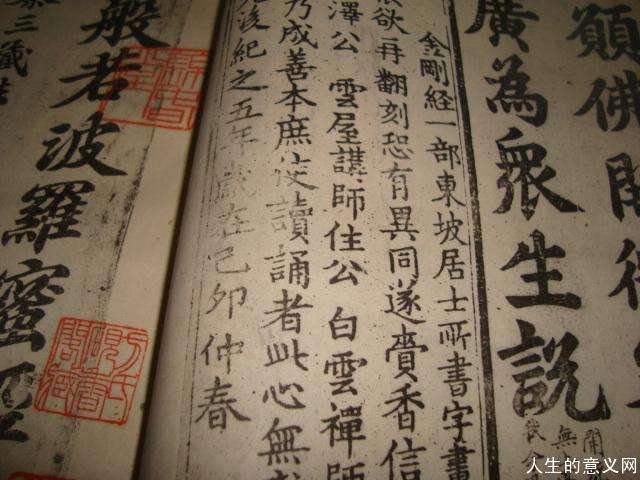 願佛開微
廣為眾生說
金剛経一部東坡居士所書字畫
欲再翻刻恐有異同遂賫香信
澤公雲屋講師住公白雲禪師
乃成善本庶使讀誦者此心無
後紀之五年歲在己卯仲春
般若波羅蜜經
三藏
人生的意义网